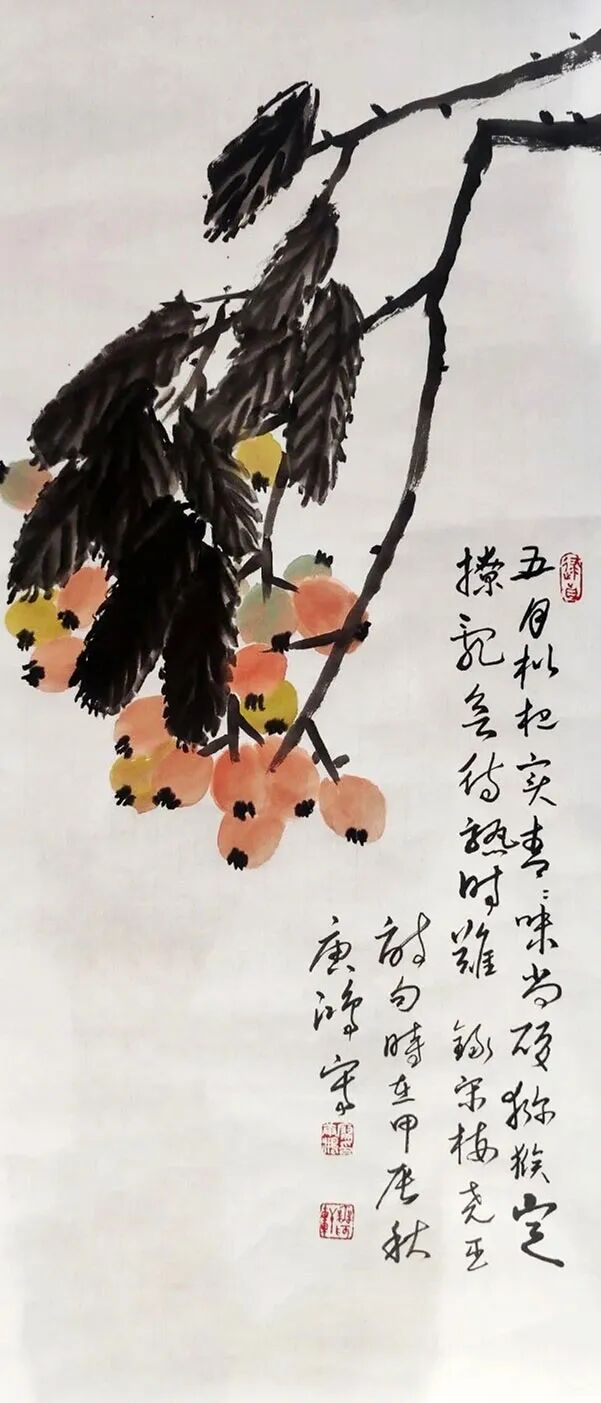 五月枇杷实青〻味尚酸猕猴定
撩乱欲待熟时難 錄宋梅尧臣
诗句時在甲辰秋
鸿写